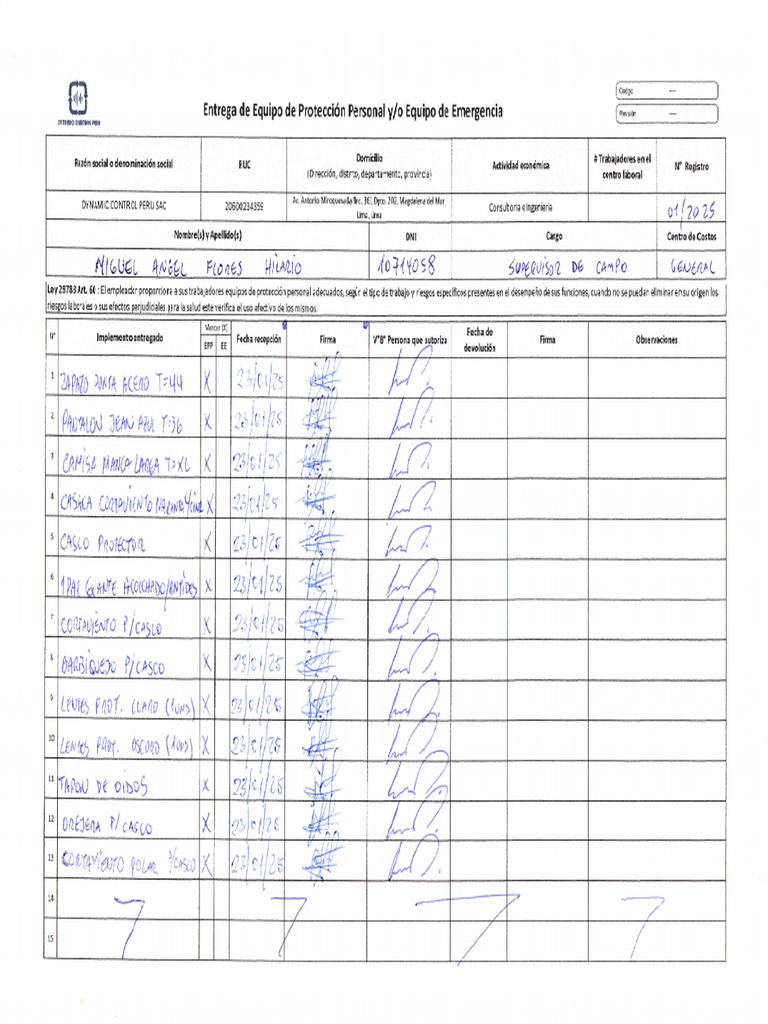 Código ---
Entrega de Equipo de Protección Personal y/o Equipo de Emergencia
Revisión ---
DYNAMIC CONTROL PERU
Razón social o denominación social RUC Domicilio (Dirección, distrito, departamento, provincia) Actividad económica # Trabajadores en el centro laboral N° Registro
DYNAMIC CONTROL PERU SAC 20600234359 Av. Antonio Miroquesada Nro. 361 Dpto. 202, Magdalena del Mar, Lima, Lima Consultoria e Ingenieria 01/2025
Nombre(s) y Apellido(s) DNI Cargo Centro de Costos
MIGUEL ANGEL FLORES HILARIO 10714058 SUPERVISOR DE CAMPO GENERAL
Ley 29783 Art. 60 : El empleador proporciona a sus trabajadores equipos de protección personal adecuados, según el tipo de trabajo y riesgos específicos presentes en el desempeño de sus funciones, cuando no se puedan eliminar en su origen los
riesgos laborales o sus efectos perjudiciales para la salud este verifica el uso efectivo de los mismos.
N° Implemento entregado Marcar (X) EPP EE Fecha recepción Firma V°B° Persona que autoriza Fecha de devolución Firma Observaciones
1 ZAPATO PUNTA ACERO T=44 X 23/01/25
2 PANTALON JEAN AZUL T=36 X 23/01/25
3 CAMISA MANGA LARGA T=XL X 23/01/25
4 CASACA CORTAVIENTO X 23/01/25
5 CASCO PROTECTOR X 23/01/25
6 1PAR GUANTE ACOLCHADO/ X 23/01/25
7 CORTAVIENTO P/CASCO X 23/01/25
8 BARBIQUEJO P/CASCO X 23/01/25
9 LENTES PROT. CLARO (1UND) X 23/01/25
10 LENTES PROT. OSCURO (1UND) X 23/01/25
11 TAPON DE OIDOS X 23/01/25
12 OREJERA P/CASCO X 23/01/25
13 CORTAVIENTO POLAR P/CASCO X 23/01/25
14
15